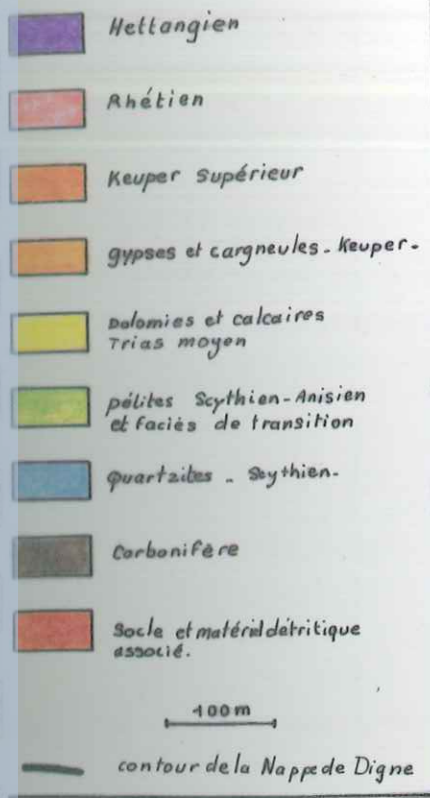 Hettangien
Rhétien
Keuper Supérieur
gypses et cargneules - Keuper -
Dolomies et calcaires
Trias moyen
pélites Scythien-Anisien
et faciès de transition
quartzites - Scythien -
Carbonifère
Socle et matériel détritique
associé.
400m
contour de la Nappe de Digne